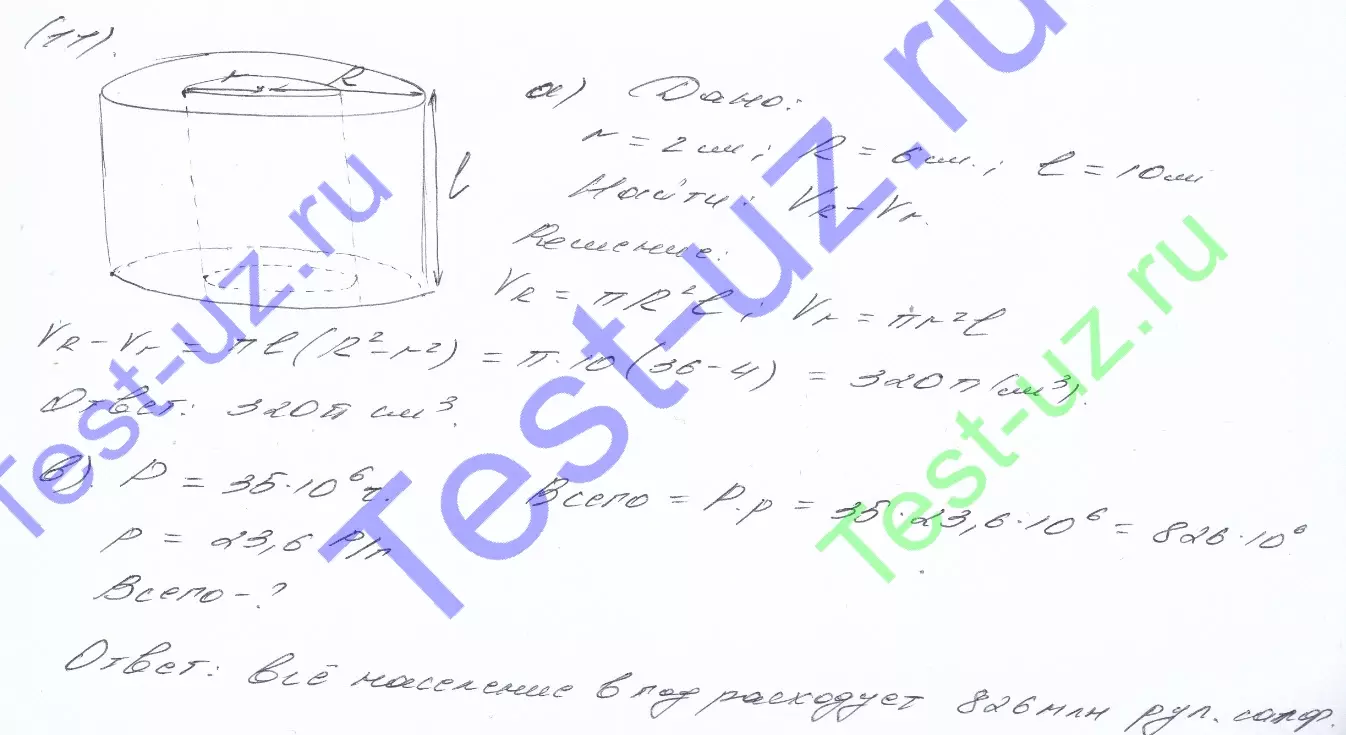 (11).
r R
l
а) Дано:
r = 2 см; R = 6 см.; l = 10 см
Найти: V_R - V_r.
Решение:
V_R = πR²l; V_r = πr²l
V_R - V_r = πl(R² - r²) = π·10(36-4) = 320π (см³).
Ответ: 320π см³.
в). P = 35·10⁶ч. Всего = P·p = 35·23,6·10⁶ = 826·10⁶
p = 23,6 Р/п
Всего - ?
Ответ: всё население в год расходует 826 млн рул.
Test-uz.ru
Test-uz.ru
Test-uz.ru